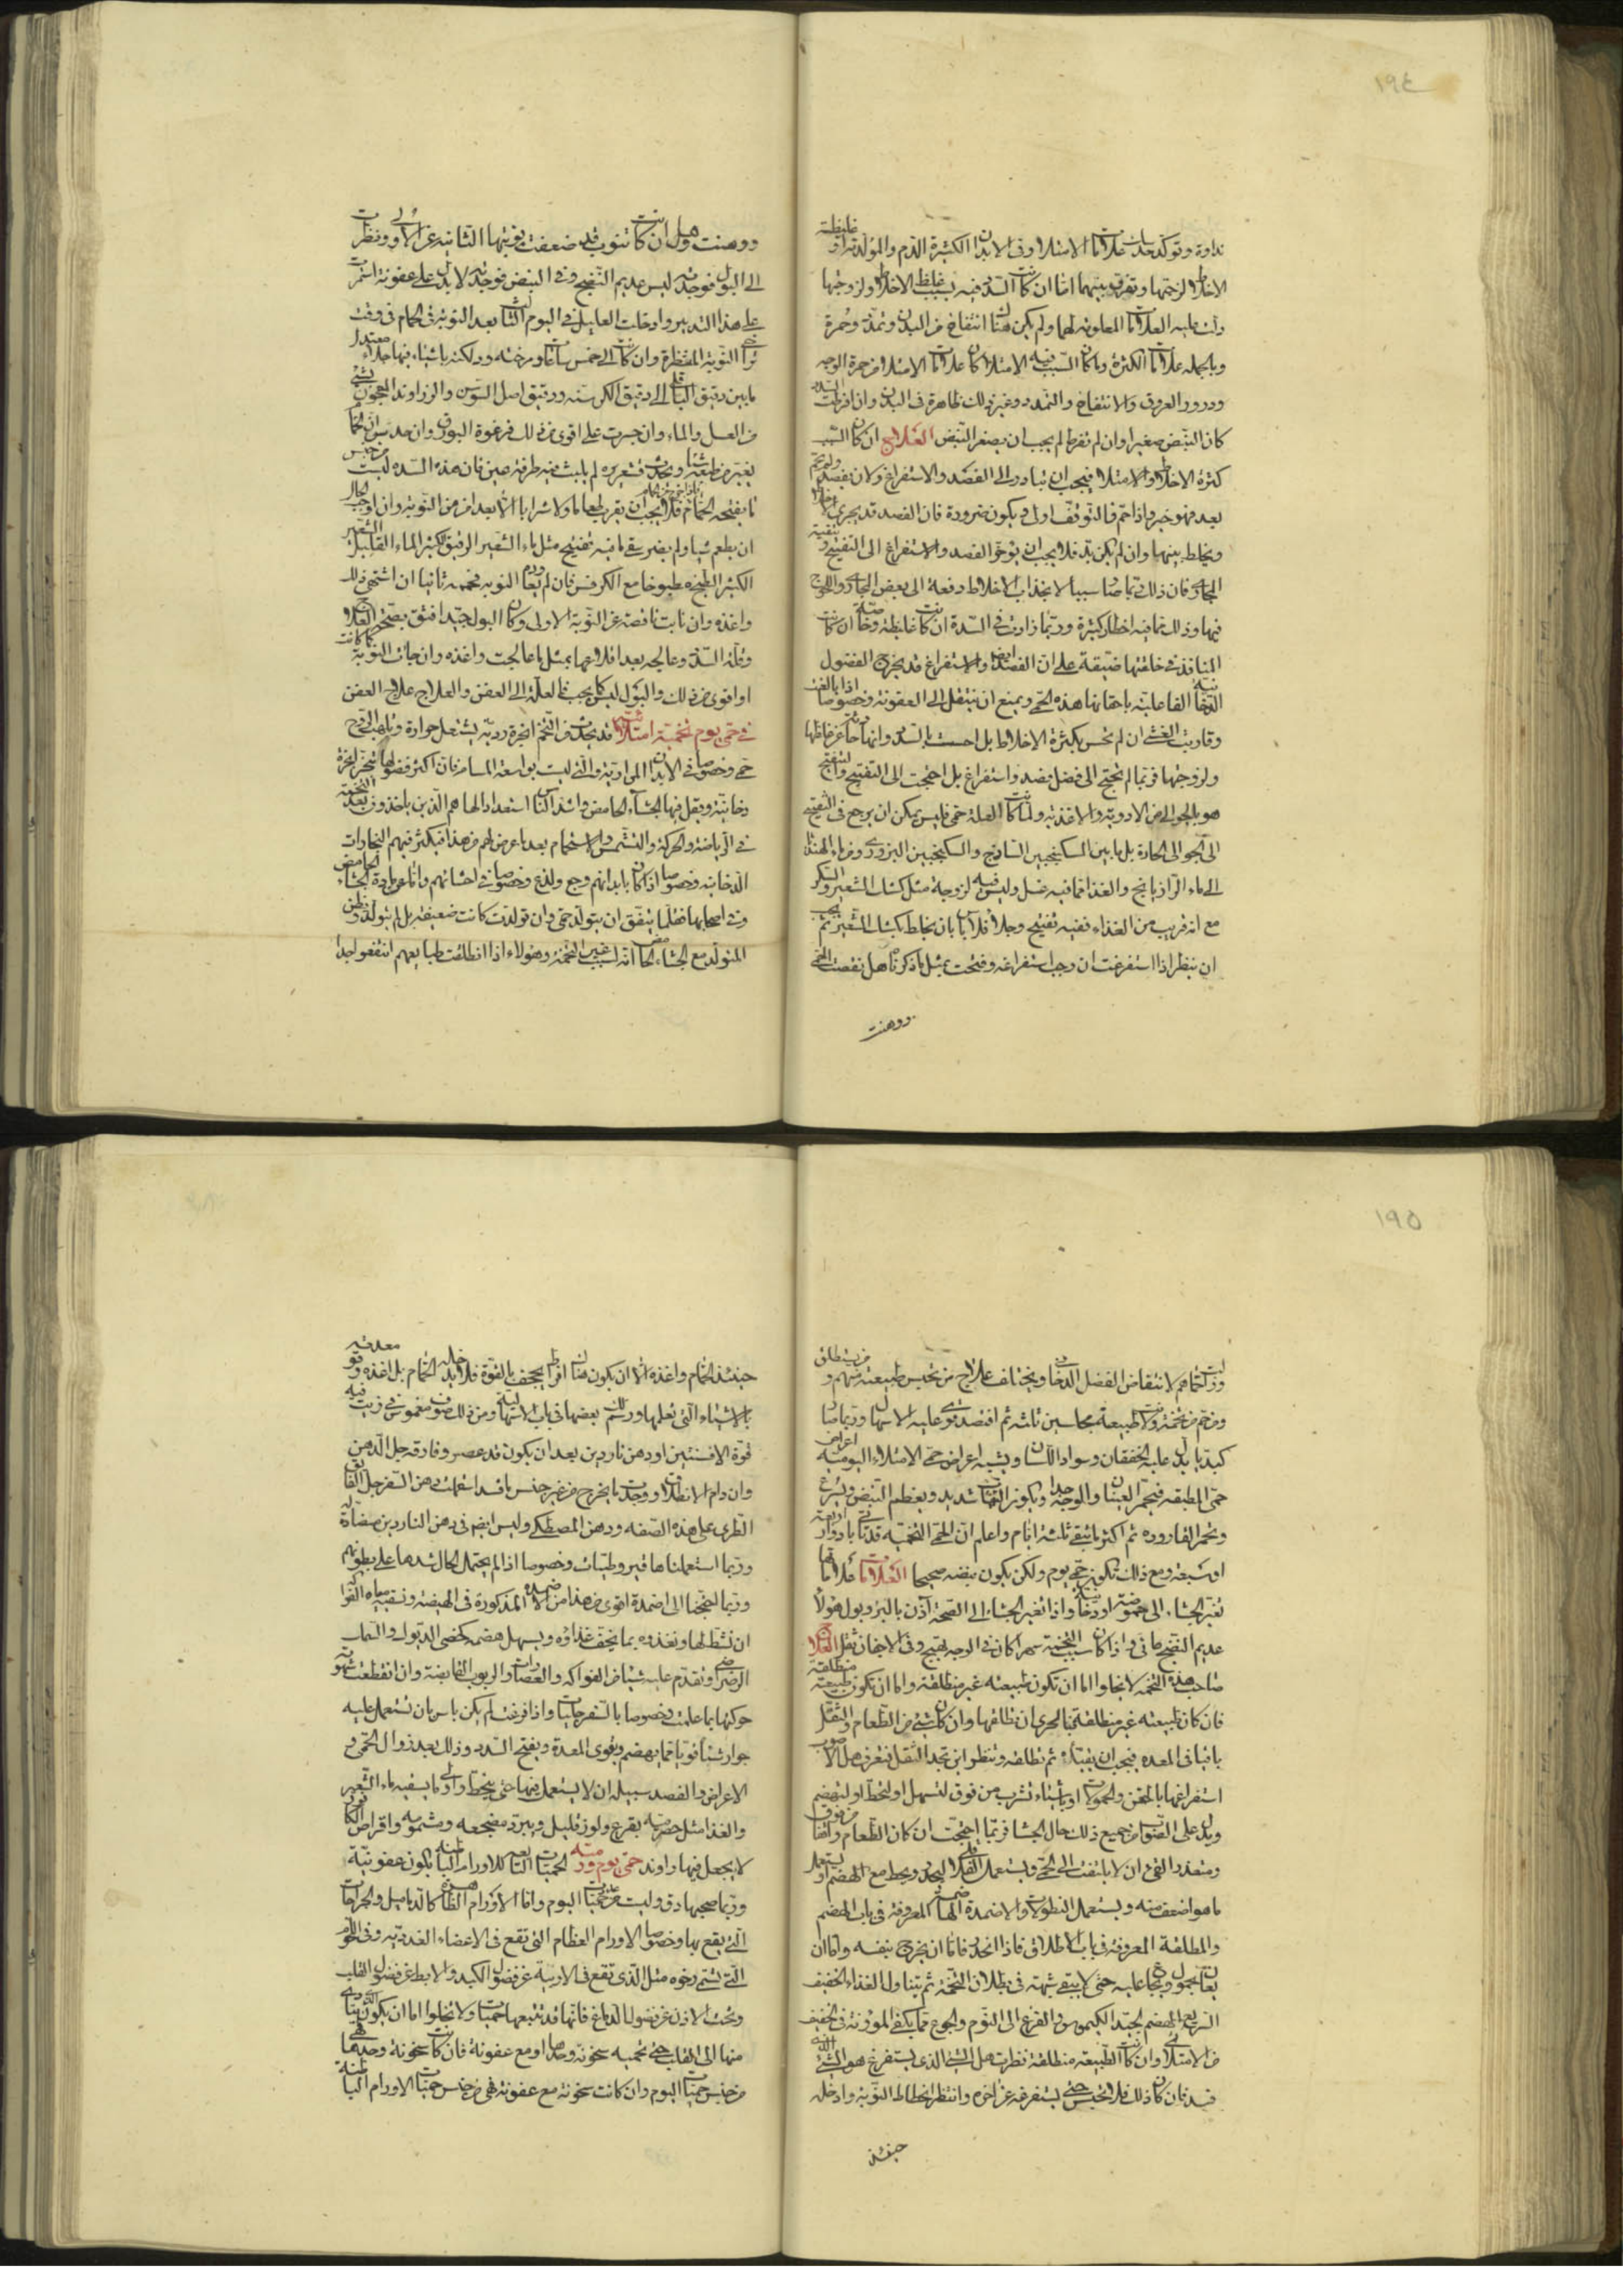 ١٩٤
نداوة وتوكد
علامات الامتلا وفى الابدان الكثيرة الدم والمولدة اخلاطا غليظة
الاخلاط لزجتها وتفرق بينهما اما ان كانت السدد فيه بسبب غلظ الاخلاط ولزوجتها
دلت عليه العلامات المعلومة لهما ولم يكن هناك انتفاخ من البدن وتمدد وحمرة
وبالجمله علامات الكثرة وما كان السبب فيه الامتلا كان علامات الامتلا من حمرة الوجه
ودرور العروق والانتفاخ والتمدد وغير ذلك ظاهرة فى البدن وان افرطت السدد
كان النبض صغيرا وان لم تفرط لم يجب ان يصغر النبض العلاج ان كان السبب
كثرة الاخلاط والامتلا فيجب ان تبادر الى الفصد والاستفراغ ولان يفصد ولم يحم
بعد فهو خير واذا حم فالتوقف اولى ويكون ضرورة فان الفصد قد يجرى اخلاطا
ويخلط بينهما وان لم يكن بد فلا يجب ان يوخر الفصد والاستفراغ الى التفتيح وتنقية
المجارى فان ذلك ربما صار سببا لانجذاب الاخلاط دفعة الى بعض المجارى واللحوج
فيها وذلك مما فيه اخطار كثيرة وربما زادت فى السدة ان كانت غليظة وخاصة ان كانت
المنافذ فى خلقتها ضيقة على ان الفصد ايضا والاستفراغ قد يخرج الفضول
الدخانية الفاعلية باحتقانها هذه الحمى ويمنع ان ينتقل الى العفونة وخصوصا اذا بالغت
وقاربت الغشى ان لم تحس بكثرة الاخلاط بل احسست بالسدد وانها حادثة عن غلظها
ولزوجتها فربما لم تحتج الى فضل فصد واستفراغ بل احتجت الى التفتيح والتفتيح
هو بالجوالى من الادوية والاغذية ولما كانت العلة حمى فليس يمكن ان يرجع فى التفتيح
الى الجوالى الحارة بل ما بين السكنجبين الساذج والسكنجبين البزورى ومن ماء الهندبا
الى ماء الرازيانج والغذا مما فيه غسل وليس فيه لزوجة مثل كشك الشعير والسكر
مع انه قريب من الغذاء ففيه تفتيح وجلا فلا باس بان يخلط بكشك الشعير ثم يجب
ان ينظر اذا استفرغت ان وجب استفراغه وفتحت بمثل ما ذكرنا هل نقصت الحمى
ووهنت
ووهنت وهل ان كانت تنوب قد ضعفت نوبتها الثانيه عن الاولى ونظرت
الى البول فوجدته ليس عديم النضج وفى النبض فوجدته لا يدل على عفونة استمررت
على هذا التدبير وادخلت العليل فى اليوم الثالث بعد النوبة فى الحمام فى وقت
تراخى النوبة المنتظرة وان كانت الى خمس ساعات ومرخته ودلكته باشياء فيها جلاء معتدل
ما بين دقيق الباقلى الى دقيق الكرسنه ودقيق اصل السوسن والزراوند المعجون بشئ
من العسل والماء وان جسرت على اقوى من ذلك فرغوة البورق
ان يطعم شيا ولم يضر سقى ما فيه تفتيح مثل ماء الشعير الرقيق الكثير الماء القليل الشعير
الكثير الطبخه مطبوخا مع الكرفس فان لم يعاود النوبه فحممه ثانيا ان اشتهى ذلك
واغذه وان نابت ناقصة عن النوبة الاولى وكان البول جيدا فثق بصحة العلاج
وقلة السدد وعالجه بعد اقلاعها بمثل ما عالجت واغذه وان جائت النوبة كما كانت
او اقوى من ذلك والبول ليس كما يجب فالعلة الى العفن والعلاج علاج العفن
فى حمى يوم تخميه امتلائيه قد يحدث من التخم ابخرة رديه يشتعل حرارة
حمى وخصوصا فى الابدان المرارية والتى ليست بواسعة المسام فان اكثر فضولها تتبخر ابخرة
دخانية ويقل فيها الجشاء الحامض واشد الناس استعدادا لها هم الذين ياخذون بعد التخمة
فى الرياضة والحركة والتشمس والاستحمام بعد ما عرض لهم من هذا فيكثر فيهم البخارات
الدخانيه وخصوصا اذا كان بابدانهم وجع ولذع وخصوصا فى احشائهم
وفى اصحابها فقلما يتفق ان يتولد حمى وان تولدت كانت ضعيفة بل لم يتولد وظن
المتولد مع الجشاء الحامض انه لسبب غير التخمة وهولاء اذا انطلقت طبايعهم انتفعوا جدا
١٩٥
لانتقاض الفضل الدخانى ويختلف علاج من تحبس طبيعته منهم ومن يستطلق
كبديا يدل عليه الخفقان وسواد اللسان ويشبه اعراض حمى الامتلاء اليوميه اعراض
حمى المطبقه فيحمر العينان والوجه جدا ويكون الالتهاب شديد ويعظم النبض ويسرع
ويحمر القاروره ثم اكثر ما تبقى ثلثه ايام واعلم ان الحمى التخميه قد تاتى بادوار اربعة
او سبعة ومع ذلك تكون حمى يوم ولكن يكون نبضه صحيحا العلامات علاماتها
تغير الجشاء الى حموضة او دخانية واذا تغير الجشاء الى الصحة آذن بالبرو وبول هولاء
عديم النضج مائى واذا كان سبب التخمة سهرا كان فى الوجه تهيج وفى الاجفان ثقل العلاج
صاحب هذه التخمة لا يخلوا اما ان تكون طبيعته غير منطلقة واما ان تكون طبيعته منطلقة
فان كان طبيعته غير منطلقة فبالحرى ان تطلقها وان كان شئ من الطعام والثقل
باقيا فى المعده فيجب ان يقياه ثم تطلقه وتنظر اين تجد الثقل فتعرف هل الاصوب
استفراغها بالحقن والحمولات او باشياء تشرب من فوق لتسهل او لتحط او لتهضم
ويدل على الصواب من جميع ذلك حال الجشا فربما احتجت ان كان الطعام واقفا من فوق
وتعذر القى ان لا يلتفت الى الحمى ويستعمل الفلافلى ليحدر ويحط مع الهضم او يستعمل
ما هو اضعف منه ويستعمل النطولات والاضمدة الهاضمة المعروفة فى باب الهضم
والمطلقة المعروفة فى باب الاطلاق فاذا انحدر فاما ان يخرج بنفسه واما ان
يعان بحمول ويجاع عليه حتى لا يبقى شبهة فى بطلان التخمة ثم يتناول الغذاء الخفيف
السريع الهضم الجيد الكيموس والفزع الى النوم والجوع مما يكفى المؤونة فى تخفيف
من الامتلاء وان كانت الطبيعة منطلقة نظرت هل الشئ الذى يستفرغ هو الشئ الذى
فسد فان كان ذلك فلا تحبس حتى يستفرغه عن اخره وانتظر انحطاط النوبة وادخله
حينئذ
حينئذ الحمام واغذه الا ان يكون هناك افراط يجحف بالقوة فلا تدخله الحمام بل اغذه وقو معدته
بالاشياء التى تعلمها ورسم لك بعضها فى باب الاسهال ومن ذلك صوف مغموس فى زيت فيه
قوة الافسنتين او دهن ناردين بعد ان يكون قد عصر وفارقه جل الدهن
وان دام الانطلاق ووجدت ما يخرج من غير جنس ما فسد استعملت دهن السفرجل الفائق
الطرى على هذه الصفه ودهن المصطكى وليس ايضم فى دهن الناردين مضادة له
وربما استعملناها قيروطيات وخصوصا اذا لم يحتمل الحال شدها على بطونهم
وربما التجئنا الى اضمدة اقوى من هذا من الاضمدة المذكورة فى الهيضه ونسقيه مياه الفواكه
ان نشط لها ونغذوه بما يخف غذاؤه ويسهل هضمه كخصى الديوك والسمك
الرضراضى ونقدم عليه شيئا من الفواكه والعصارات والربوب القابضة وان انقطعت شهوته
حركتها بما علمت وخصوصا بالسفرجليات واذا فرغت لم يكن باس بان تستعمل عليه
جوارشنا قويا مما يهضم ويقوى المعدة ويفتح السدد وذلك بعد زوال الحمى و
الاعراض والفصد سبيله ان لا يستعمل فيها حتى ينحط واولى ما يسقيه ماء الشعير
والغذا مثل حصرميه بقرع ولوز قليل ويبرد مضجعه ومشمومه واقراص الكافور
لا يجعل فيها راوند حمى يوم ورميه الحميات التابعه للاورام الباطنه يكون عفونيه
وربما صحبها دق وليست من عداد حميات اليوم واما الاورام الظاهرة كالدماميل والخراجات
التى يقع بها وخصوصا الاورام العظام التى تقع فى الاعضاء الغدديه وفى اللحوم
التى تسمى رخوه مثل الذى تقع فى الاربية عن فضول الكبد والابط عن فضول القلب
وتحت الاذن عن فضول الدماغ فانها قد تتبعها حميات ولا يخلوا اما ان يكون
منها الى القلب حتى تحميه سخونة وحدها او مع عفونة فان كانت سخونة وحدها فهى
من جنس حميات اليوم وان كانت سخونة مع عفونة فهى من جنس حميات الاورام الباطنة